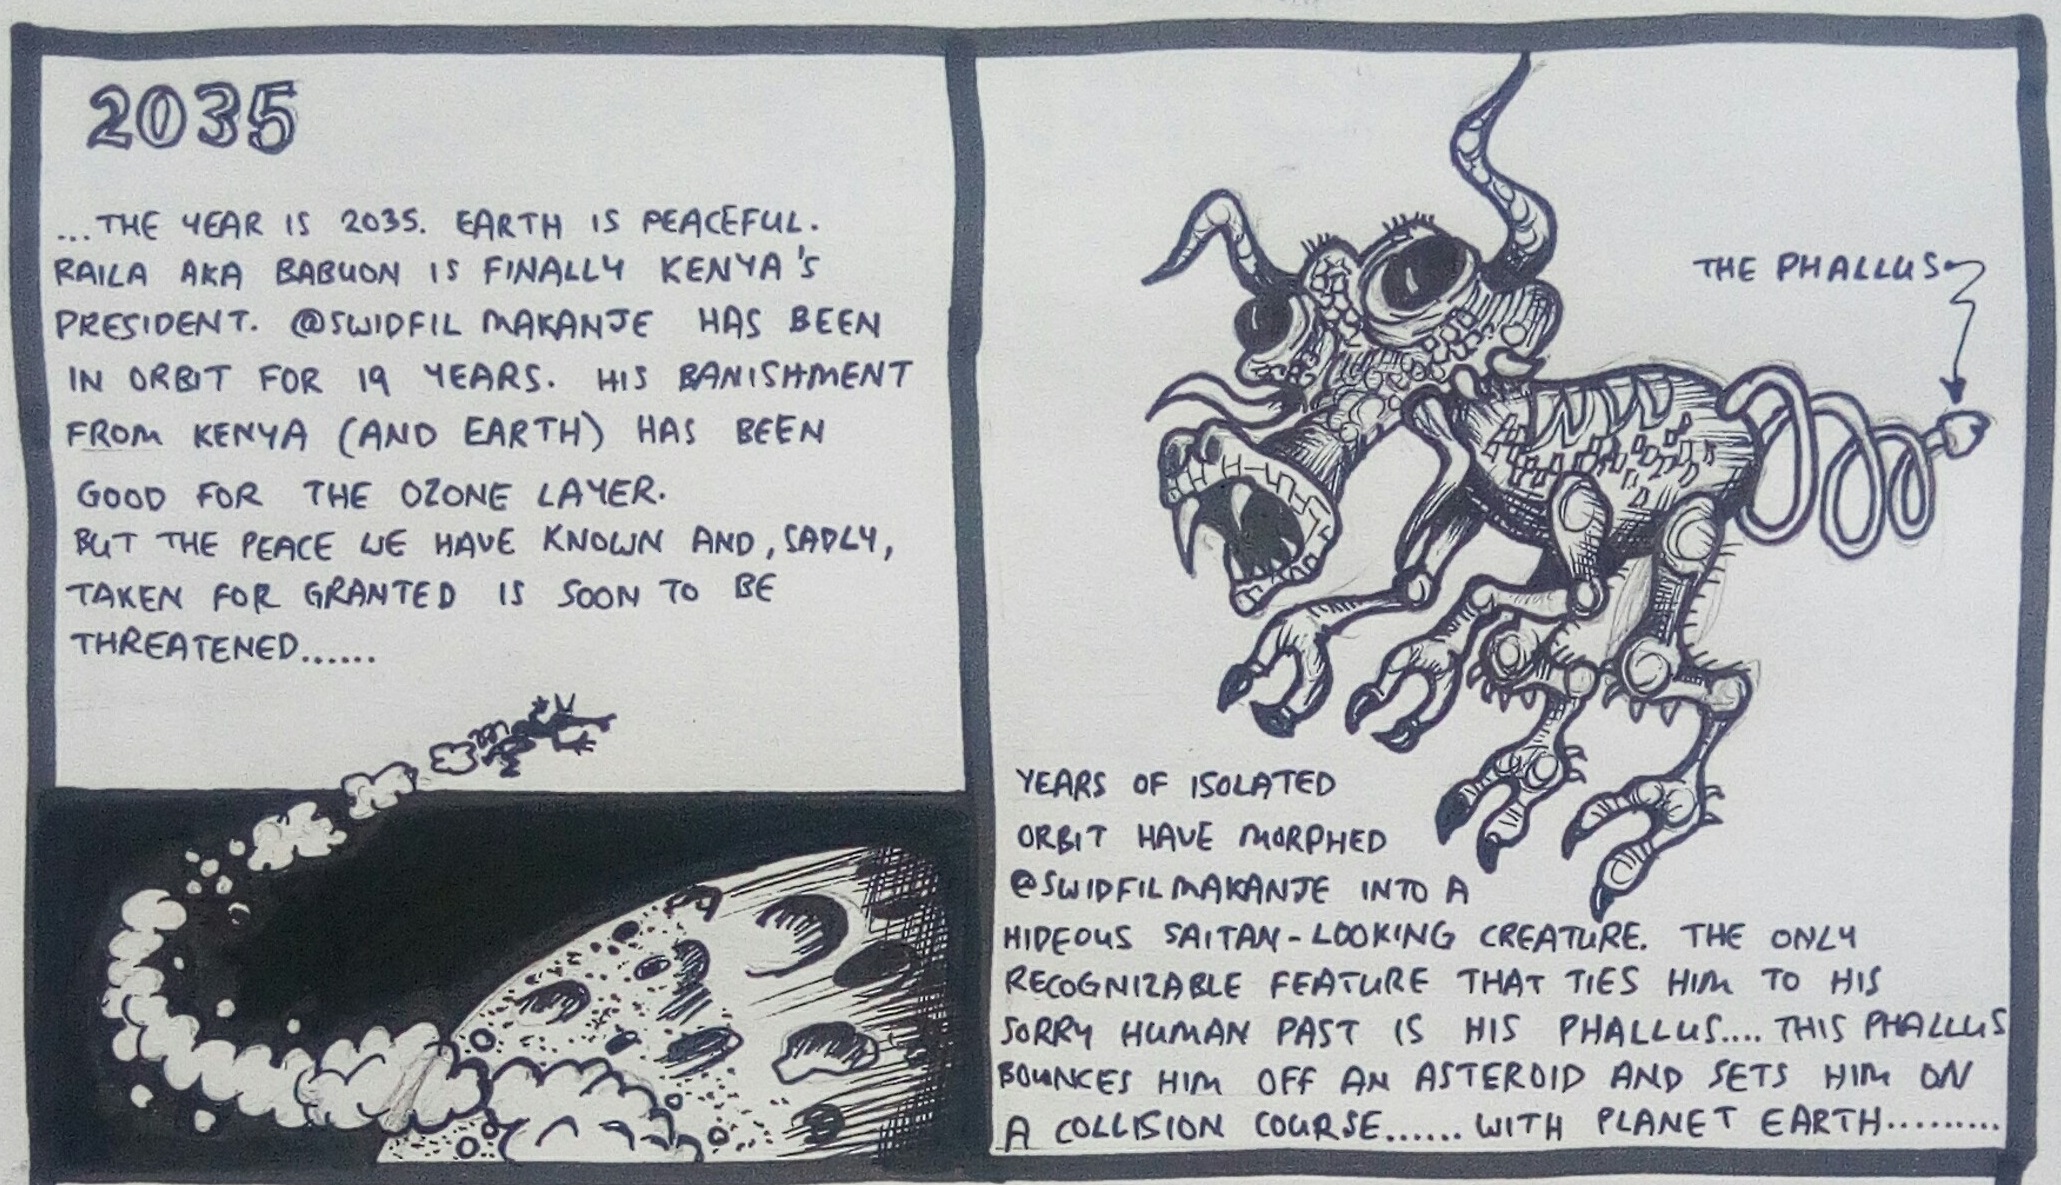 2035
...THE YEAR IS 2035. EARTH IS PEACEFUL.
RAILA AKA BABUON IS FINALLY KENYA'S
PRESIDENT. @SWIDFIL MAKANJE HAS BEEN
IN ORBIT FOR 19 YEARS. HIS BANISHMENT
FROM KENYA (AND EARTH) HAS BEEN
GOOD FOR THE OZONE LAYER.
BUT THE PEACE WE HAVE KNOWN AND, SADLY,
TAKEN FOR GRANTED IS SOON TO BE
THREATENED......
THE PHALLUS
YEARS OF ISOLATED
ORBIT HAVE MORPHED
@SWIDFILMAKANJE INTO A
HIDEOUS SAITAN-LOOKING CREATURE. THE ONLY
RECOGNIZABLE FEATURE THAT TIES HIM TO HIS
SORRY HUMAN PAST IS HIS PHALLUS.... THIS PHALLUS
BOUNCES HIM OFF AN ASTEROID AND SETS HIM ON
A COLLISION COURSE...... WITH PLANET EARTH..........